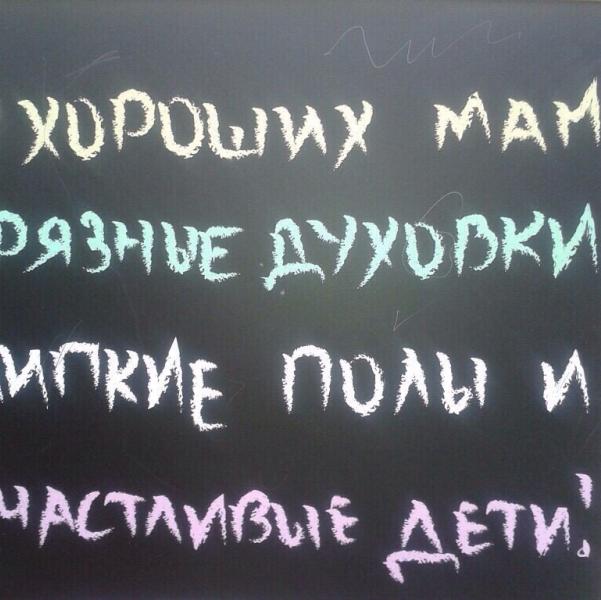 ХОРОШИХ МАМ
РЯЗНЫЕ ДУХОВКИ
ИПКИЕ ПОЛЫ И
ЧАСТЛИВЫЕ ДЕТИ!